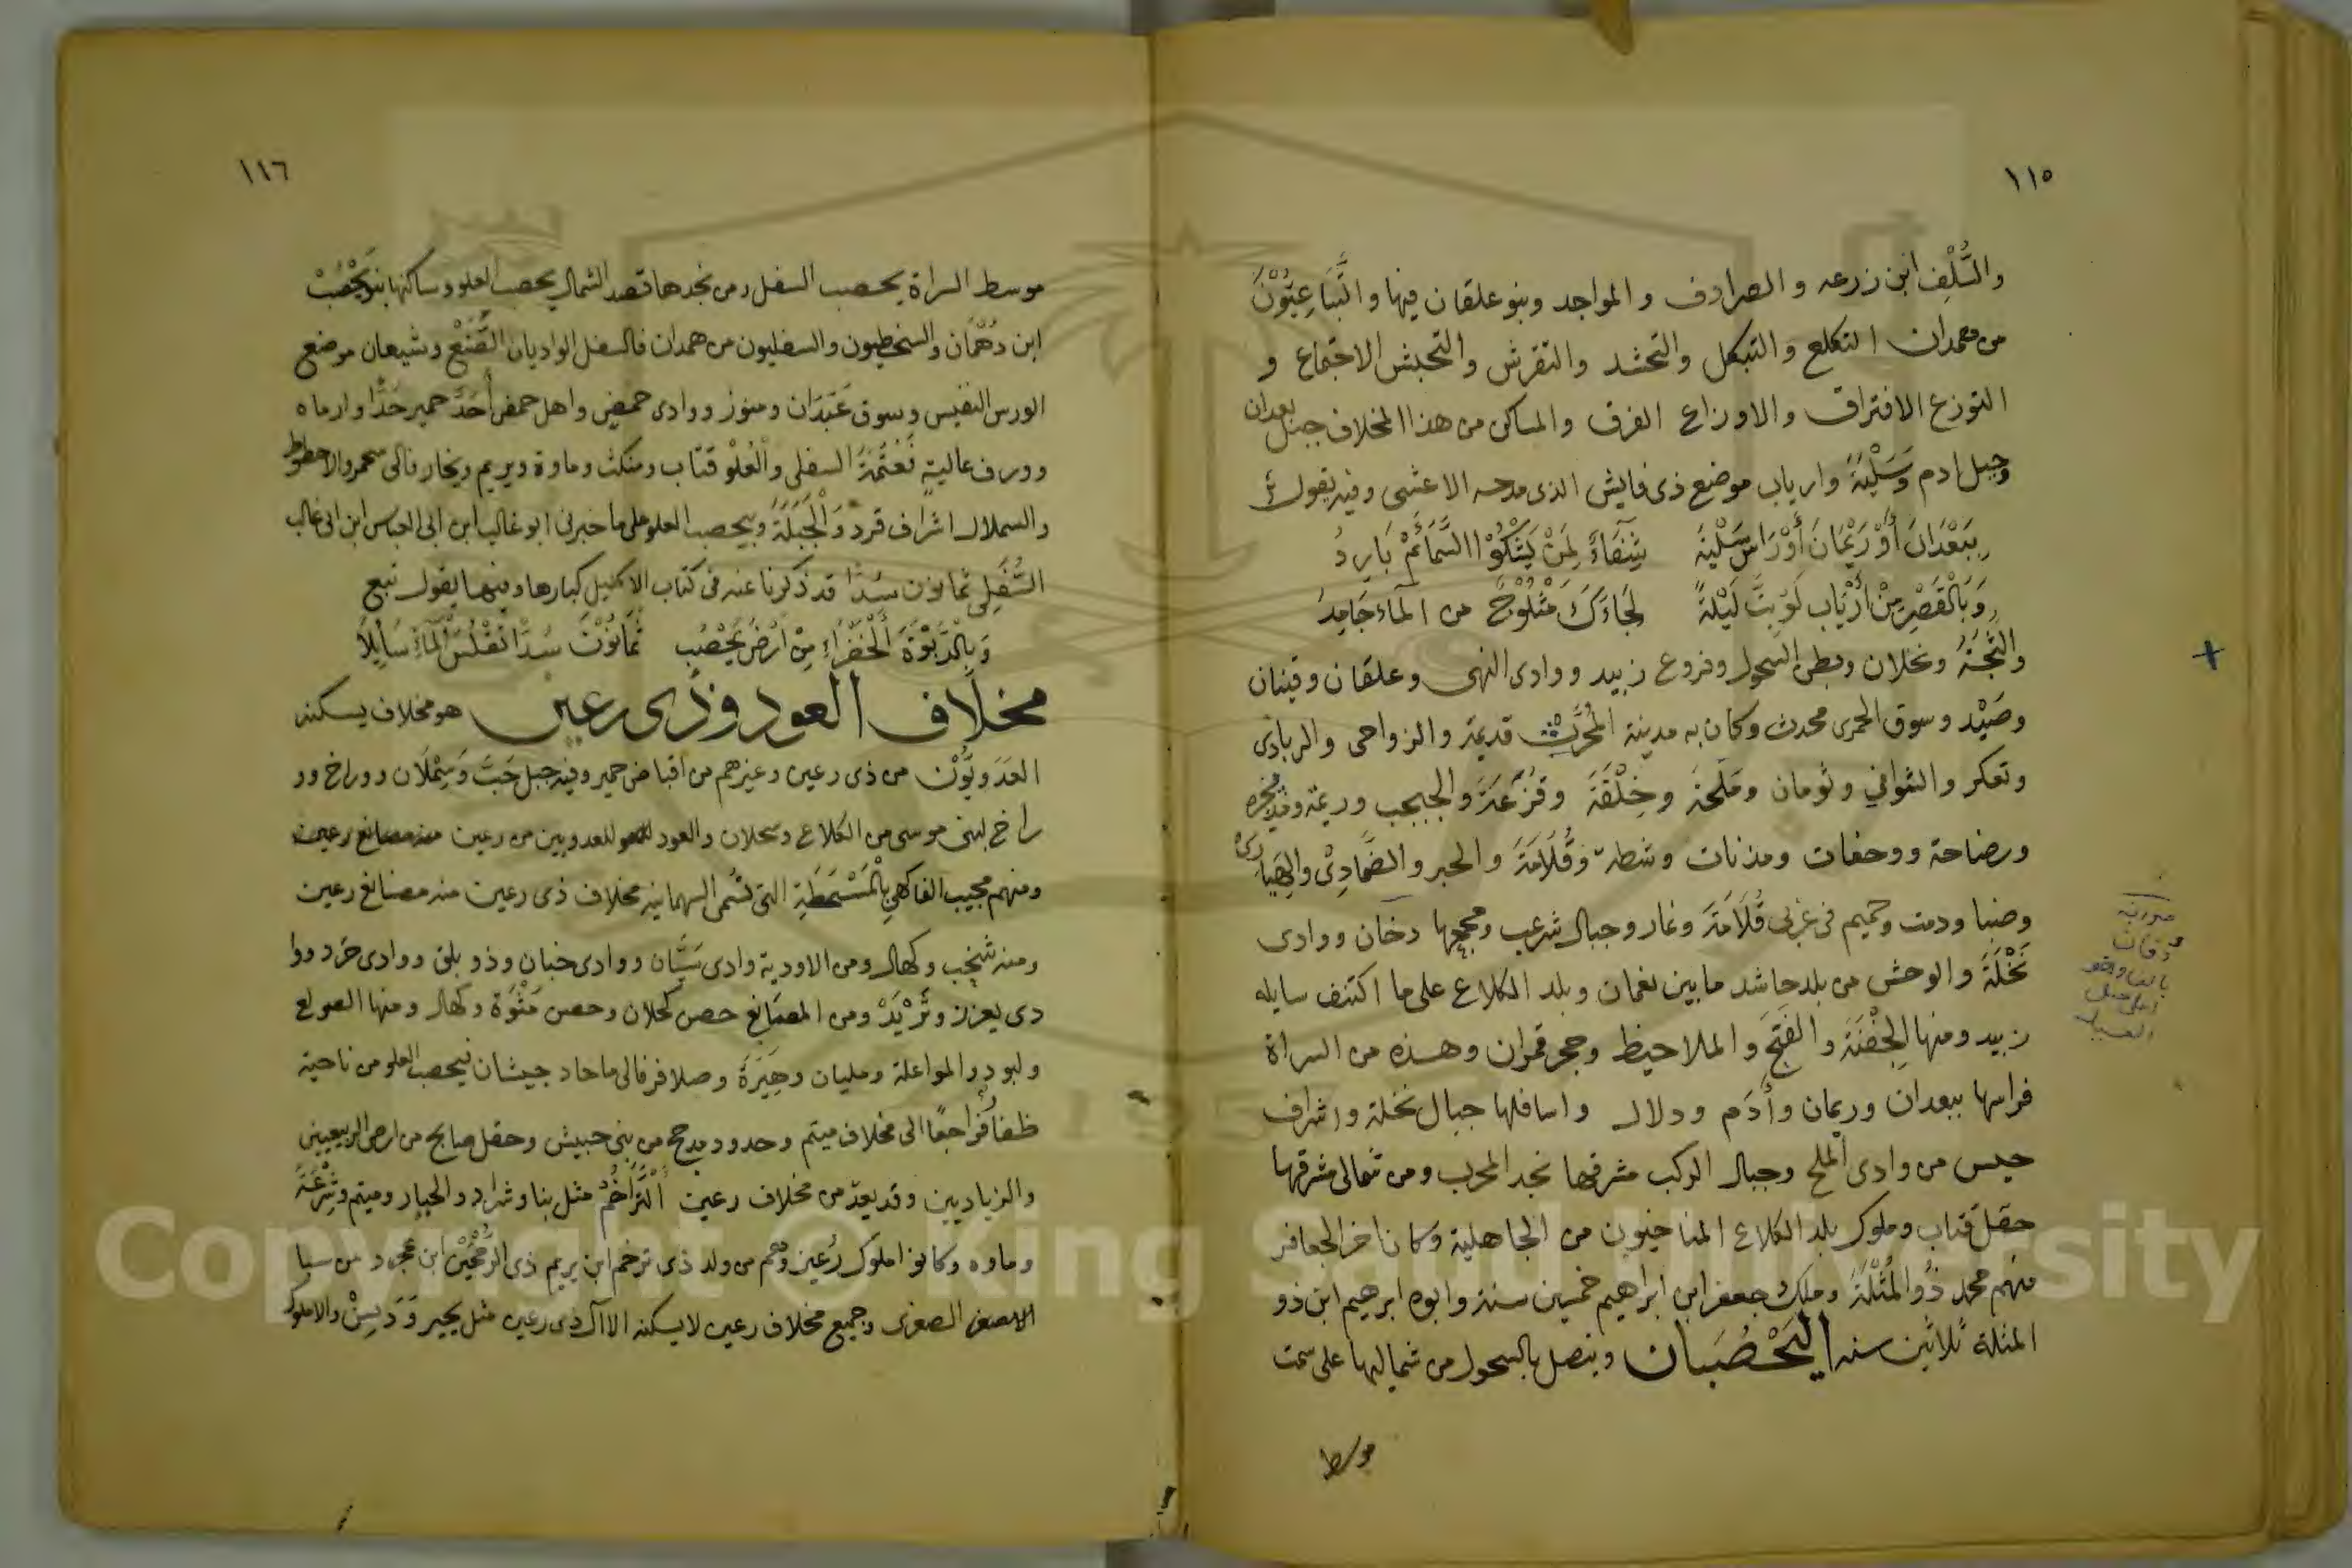 ١١٥
والسُّلْف ابن زرعه والصرادف والمواجد وبنو علقان فيها والتَّباعِيُّوْنَ
من همدان التكلع والتبكل والتحشد والتقرش والتحبش الاجتماع و
التوزع الافتراق والاوزاع الفرق والمساكن من هذا المخلاف جبل بعدان
وجبل ادم وَسَلْيَة وارياب موضع ذى فايش الذى مدحه الاعشى وفيه يقول
بِبَعْدَانَ أَوْ رَيْمَانَ أَوْ رَاسِ سَلْيَة شِفَاءٌ لِمَنْ يَشْكُوْا السَّمَائَمْ بَارِدُ
وَبِالْقَصْرِ مِنْ أَرْيَابِ لَوْ بِتَّ لَيْلَةً لَجَاءَكَ مَثْلُوْجٌ من الْمَاءِ جَامِدُ
والثُّجَّةُ ونخلان وبطن السحول وفروع زبيد ووادى النهى وعلقان وقينان
وصَيْد وسوق المحرى محدث وكان به مدينة قديمة والزواحى والربادى
وتعكر والشوافي وثومان ومَلْحَة وخِلْقَة وقَرْعَد والجبجب وريمة
ورضاحة ووحفات ومذنات وشطة وقُلَامَة والحبر والضَّمَادِىْ
وضبا ودمت وحميم فى غربى قُلَامَة ونمار وجبال شرعب دخان ووادى
نَخْلَة والوحش من بلد حاشد ما بين نعمان وبلد الكلاع على ما اكتنف سايله
زبيد ومنها الجُفْنَة والفَتَحْ والملاحيظ وحجر قمران وهذه من السراة
فراسها ببعدان وريمان وأَدَم ودلال واسافلها جبال نخلة واشراف
حيس من وادى الملح وجبال الركب مشرقها نجد المحرب ومن شمالى مشرقها
حقل قتاب وملوك بلد الكلاع المناخيون من الجاهلية وكانا خر الجعافر
منهم محمد ذُو المُثْلَةْ وملك جعفر ابن ابراهيم خمسين سنة وابوه ابرهيم ابن ذو
المثلة ثلاثين سنه اليَحْصُبَان ويتصل بالسحول من شماليها على سمت
موسط
١١٦
موسط السراة يحصب السفل ومن نجدها قصد الشمال يحصب العلو وساكنها بنو يَحْصُبْ
ابن دُهْمَان والسخطيون والسفليون من همدان فالسفل الواديان الصَّنَعْ وشيعان موضع
الورس النفيس وسوق عَبَدَان ومنوز ووادى حمض واهل حمض أَحَدُّ حمير حَدًّا وارماه
وورف عالية نَعْتُمَة السفلى والعُلْو قتاب ومنكث وماوة ويريم ويخار فالى سحمر والاحطوط
والسملال اشراف قرد وَالْجَبَلَة وبيحصب العلو على ما خبرنى ابو غالب ابن ابى العباس ابن ابى غالب
السُّفْلِى ثمانون سُدًّا قد ذكرنا عنه فى كتاب الاكليل كبارها وفيها يقول تبع
وَبِالرَّبْوَة الْخَضْرَاءِ مِنْ أَرْضِ يَحْصُبٍ ثَمَانُوْنَ سُدًّا تَقْلُسُ الْمَاءَ سَايِلاً
مخلاف العود وذى رعين هو مخلاف يسكنه
العَدَوِيُّوْن من ذى رعين وغيرهم من اقباض حمير وفيه جبل حَبّ وَسِحْلَان ووراخ وو
راخ لبنى موسى من الكلاع وسحلان والعود للعدويين من رعين
ومنهم مجيب الفاكهى بِالْمَسْتَمَطِيَة التى تُسمى السهمانية مخلاف ذى رعين منه مصانع رعين
ومنه شخب وكهال ومن الاودية وادى بَنَّان ووادى خبان وذو بلق ووادى خرد ووا
دى يعزز وثَرْيَدْ ومن المصانع حصن كحلان وحصن مَثْوَة وكهال ومنها الصولع
ولبود والمواعلة ومليان وحِيَرَة وصلافر فالى ماحاد جيشان فيحصب العلو من ناحية
ظفار راجعًا الى مخلاف ميتم وحدود مذحج من بنى حبيش وحقل صالح من ارض الربيعيين
والزياديين وقد يعدّ من مخلاف رعين التَّرَاخُمْ مثل بنا وشراد والحبار وميتم وشِرْعَة
وماوه وكانوا ملوك رُعين وهم من ولد ذى ترخم ابن يريم ذى الرُّمْحَيْنْ ابن عجرد من سبا
الاصغر الصغرى وجميع مخلاف رعين لا يسكنه الا آل ذى رعين مثل يحير وَدِيسْ والاملوك
Copyright © King Saud University